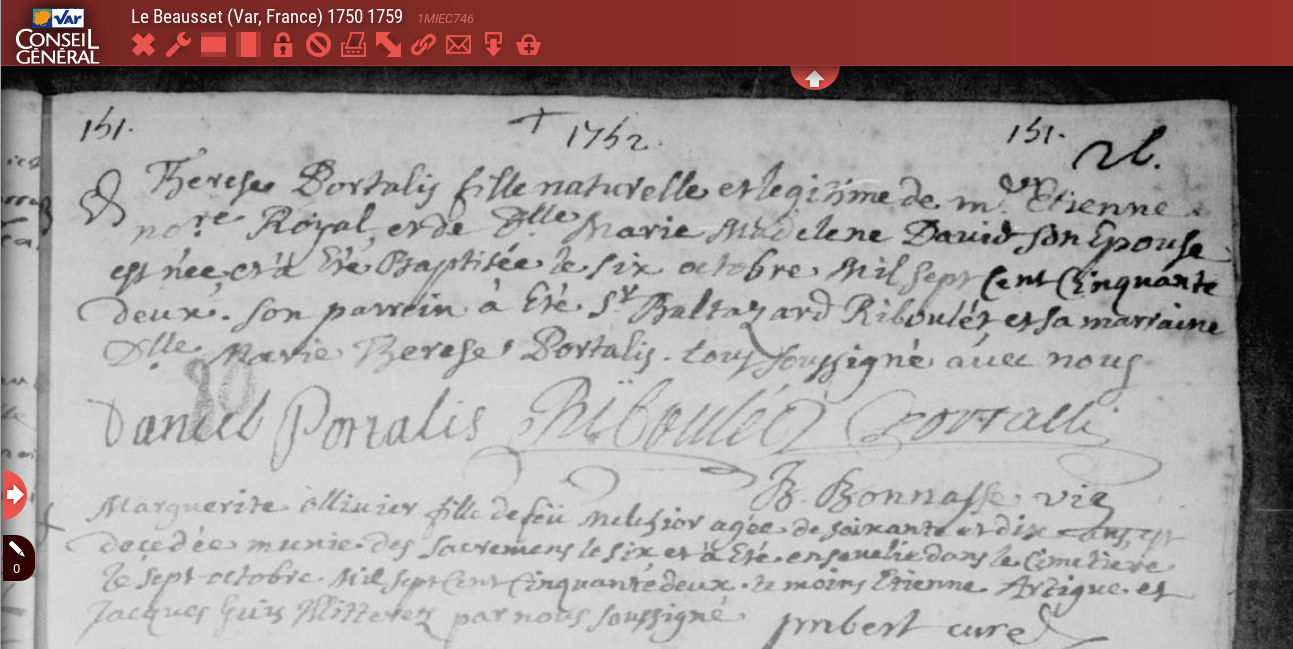 Le Beausset (Var, France) 1750 1759 1MIEC746
VAR
CONSEIL
GÉNÉRAL
151. 1752. 151.
Therese Portalis fille naturelle et legitime de mr Etienne
nore Royal, et de Dlle Marie Madelene David son Epouse
est née, et a Eté Baptisée le six octobre Mil sept Cent Cinquante
deux. son parrein à Eté Sr Baltazard Riboulét et sa marraine
Dlle Marie Therese Portalis. tous soussigné avec nous
Daniel Portalis Riboulét Portalis
B. Bonnasse vic
Marguerite ollivier fille de feü Melchior agée de soixante et dix ans, est
decedée munie des sacremens le six et à Eté ensevelie dans le Cimetiere
le sept octobre Mil sept Cent Cinquante deux. temoins Etienne Artigue et
Jacques Illitterez par nous soussigné
imbert curé
0